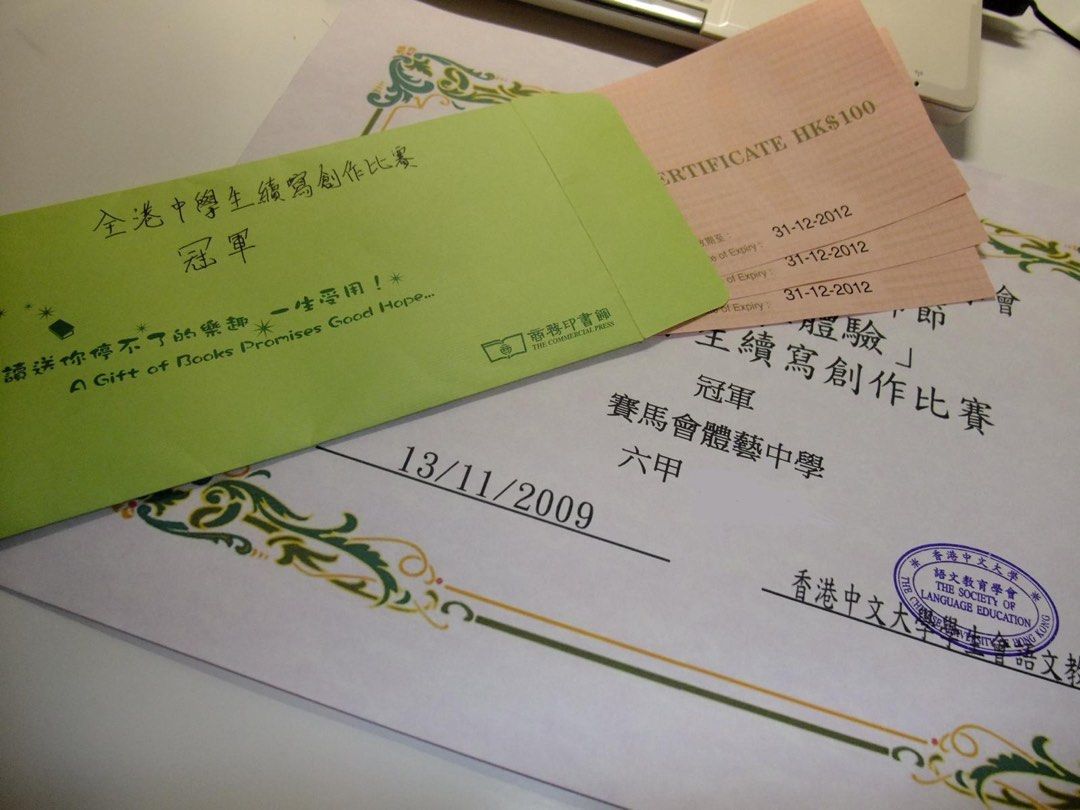 全港中學生續寫創作比賽
冠軍
讀送你停不了的樂趣 一生受用！
A Gift of Books Promises Good Hope...
商務印書館
THE COMMERCIAL PRESS
ERTIFICATE HK$100
效期至：
31-12-2012
e of Expiry :
31-12-2012
of Expiry :
31-12-2012
Expiry :
會
節
體驗」
生續寫創作比賽
冠軍
賽馬會體藝中學
六甲
13/11/2009
香港中文大學學生會語文教
香港中文大學
語文教育學會
THE SOCIETY OF
LANGUAGE EDUCATION
THE CHINESE UNIVERSITY OF HONG KONG